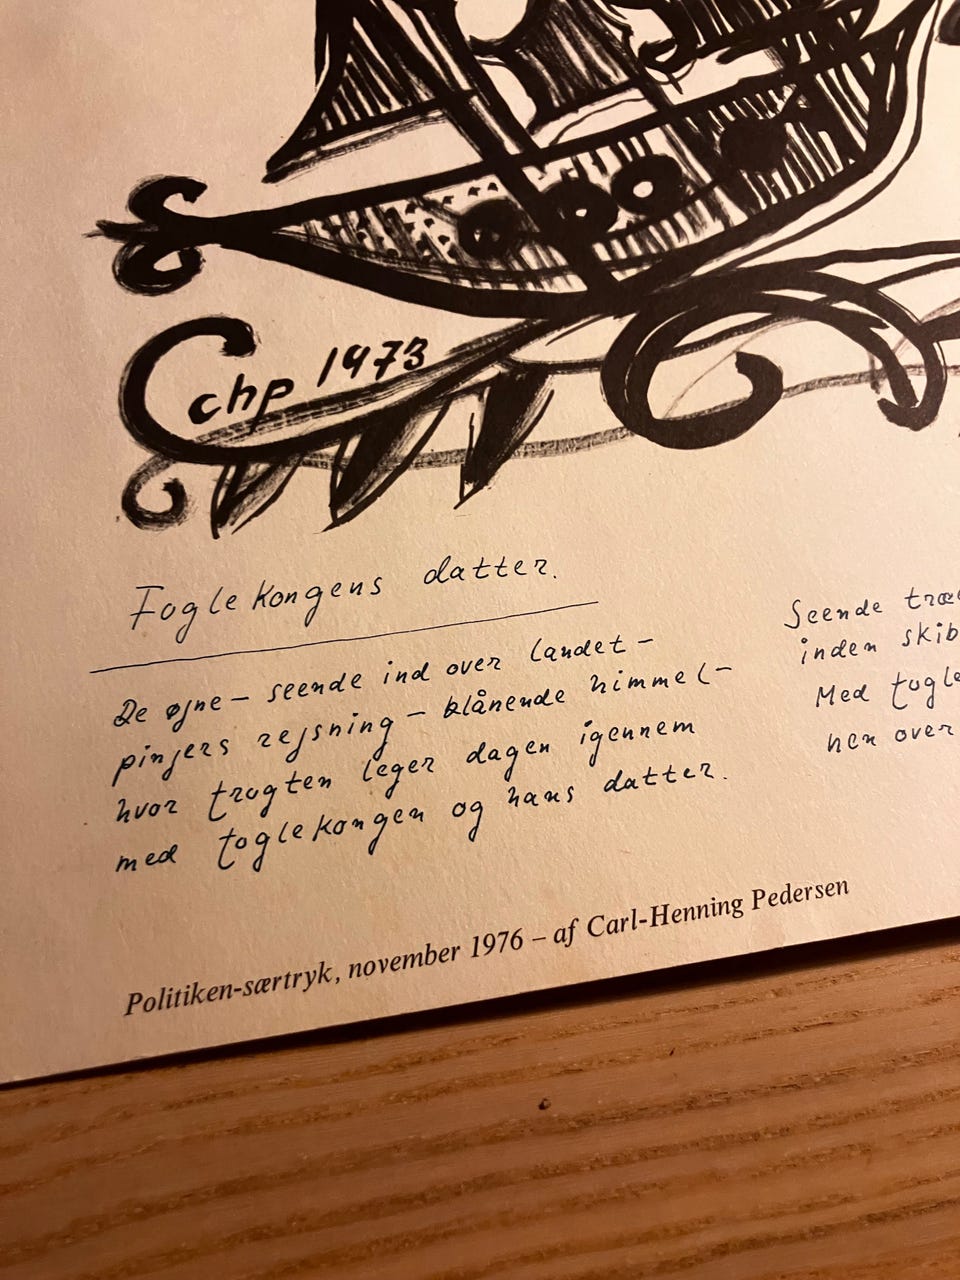 chp 1973
Foglekongens datter.
De øjne – seende ind over landet –
pinjers rejsning – blånende himmel –
hvor trøgten leger dagen igennem
med foglekongen og hans datter.
Seende træ
inden skib
Med fogle
hen over
Politiken-særtryk, november 1976 – af Carl-Henning Pedersen